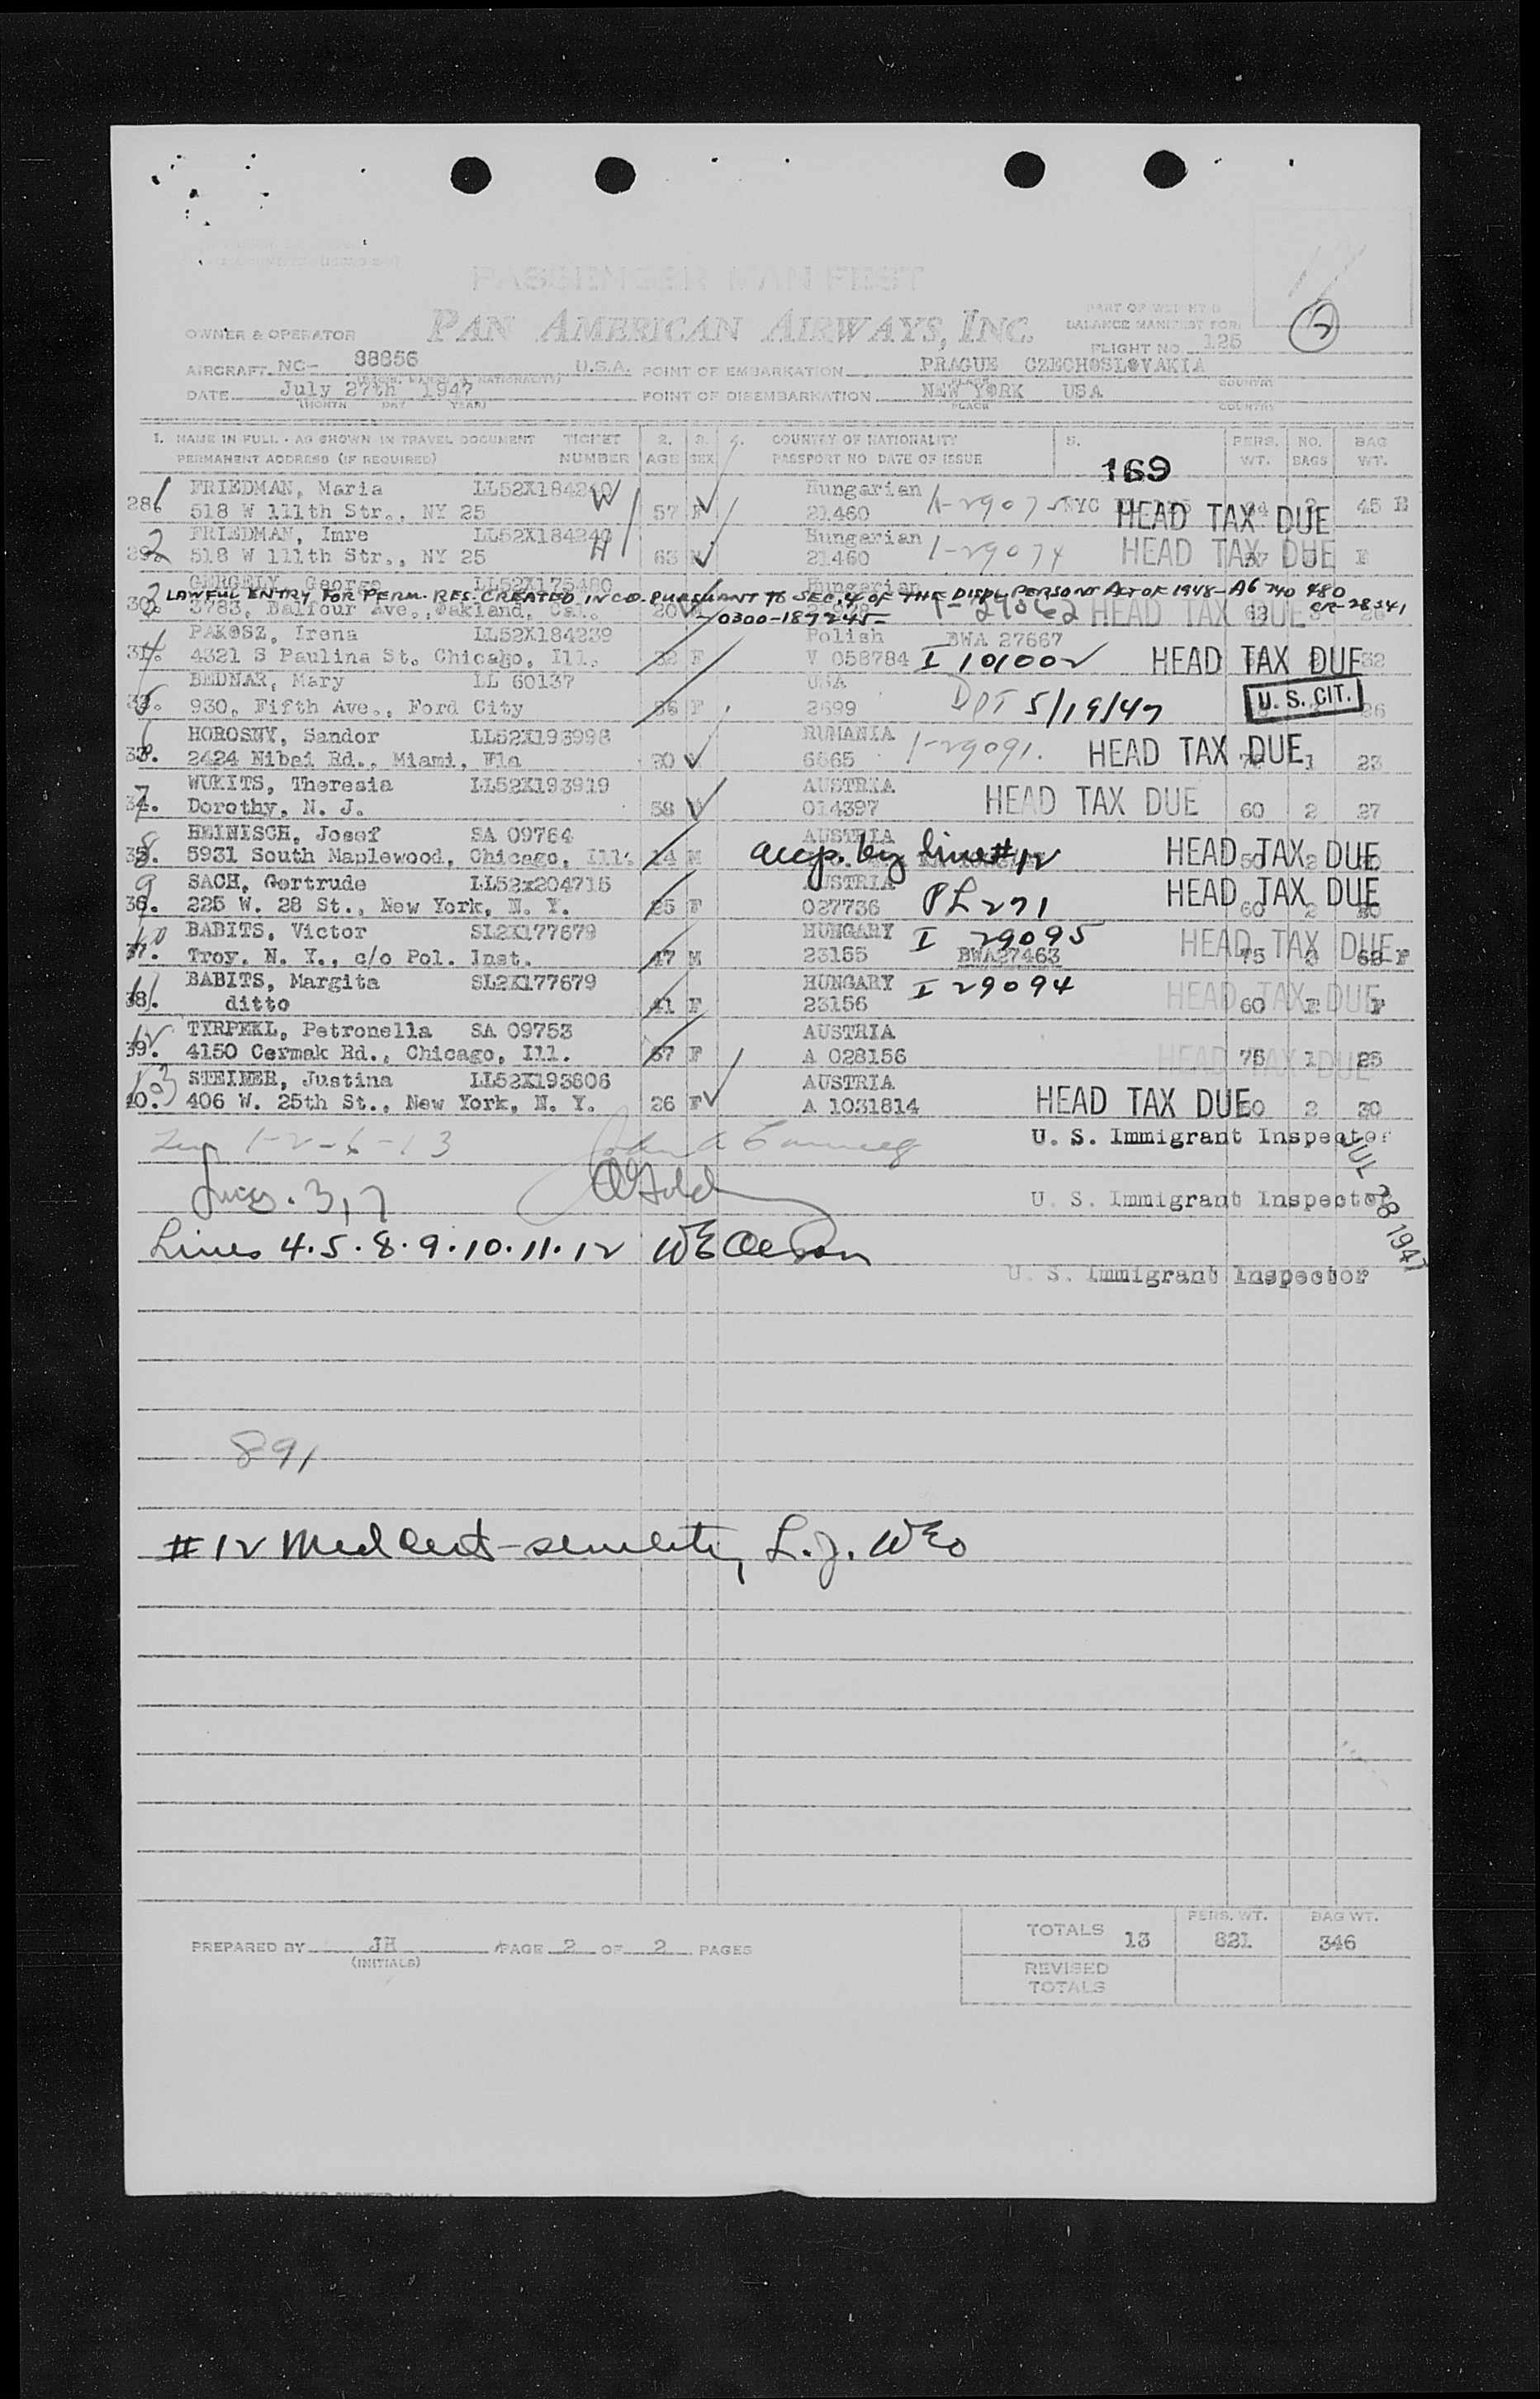 PASSENGER MANIFEST
PAN AMERICAN AIRWAYS, INC.
OWNER & OPERATOR
PART OF WEIGHT &
BALANCE MANIFEST FOR:
FLIGHT NO. 125
2
AIRCRAFT NC- 88856 U.S.A. POINT OF EMBARKATION PRAGUE CZECHOSLOVAKIA
DATE July 27th 1947 POINT OF DISEMBARKATION NEW YORK USA
(MONTH DAY YEAR) PLACE COUNTRY
1. NAME IN FULL - AS SHOWN IN TRAVEL DOCUMENT TICKET 2. 3. 4. COUNTRY OF NATIONALITY 5. PERS. NO. BAG
PERMANENT ADDRESS (IF REQUIRED) NUMBER AGE SEX PASSPORT NO DATE OF ISSUE WT. BAGS WT.
169
1 FRIEDMAN, Maria LL52X184240 W Hungarian
28. 518 W 111th Str., NY 25 57 F 21460 1-29075 NYC HEAD TAX DUE 45
2 FRIEDMAN, Imre LL52X184240 H Hungarian
29. 518 W 111th Str., NY 25 63 M 21460 1-29074 HEAD TAX DUE F
3 GERGELY, George LL52X175480 Hungarian
LAWFUL ENTRY FOR PERM. RES. CREATED IN C.O. PURSUANT TO SEC. 4 OF THE DISPL. PERSONS ACT OF 1948 - A6 740 480
30. 3783, Balfour Ave., Oakland, Cal. 20 HEAD TAX DUE CR-28341
0300-187245-
4 PAKOSZ, Irena LL52X184239 Polish BWA 27667
31. 4321 S Paulina St. Chicago, Ill. 32 F V 058784 I 101002 HEAD TAX DUE 32
5 BEDNAR, Mary LL 60137 USA
32. 930, Fifth Ave., Ford City 56 F 2699 DPT 5/19/47 U. S. CIT. 26
6 HOROSNY, Sandor LL52X193998 RUMANIA
33. 2424 Nibei Rd., Miami, Fla 30 6665 1-29091. HEAD TAX DUE 1 23
7 WUKITS, Theresia LL52X193919 AUSTRIA
34. Dorothy, N. J. 58 014397 HEAD TAX DUE 60 2 27
8 HEINISCH, Josef SA 09764 AUSTRIA
35. 5931 South Maplewood, Chicago, Ill. 14 M accp. by line #12 HEAD TAX DUE 50 2
9 SACH, Gertrude LL52x204715 AUSTRIA
36. 225 W. 28 St., New York, N. Y. 25 F 027736 PL 271 HEAD TAX DUE 60 2
10 BABITS, Victor SL2X177679 HUNGARY I 29095
37. Troy, N. Y., c/o Pol. Inst. 47 M 23155 BWA27463 HEAD TAX DUE 75 F
11 BABITS, Margita SL2X177679 HUNGARY I 29094
38. ditto 41 F 23156 HEAD TAX DUE 60 F F
12 TYRPEKL, Petronella SA 09753 AUSTRIA
39. 4150 Cermak Rd., Chicago, Ill. 67 F A 028156 HEAD TAX DUE 75 1 25
13 STEINER, Justina LL52X193806 AUSTRIA
40. 406 W. 25th St., New York, N. Y. 26 F A 1031814 HEAD TAX DUE 2 20
1-2-6-13 U. S. Immigrant Inspector
3, 7 U. S. Immigrant Inspector
JUL 28 1947
Lines 4.5.8.9.10.11.12 WE Oleson
U. S. Immigrant Inspector
891
#12 Med Cert - senility, L.J. WEO
PREPARED BY JH PAGE 2 OF 2 PAGES
(INITIALS)
PERS. WT. BAG WT.
TOTALS 13 821 346
REVISED
TOTALS